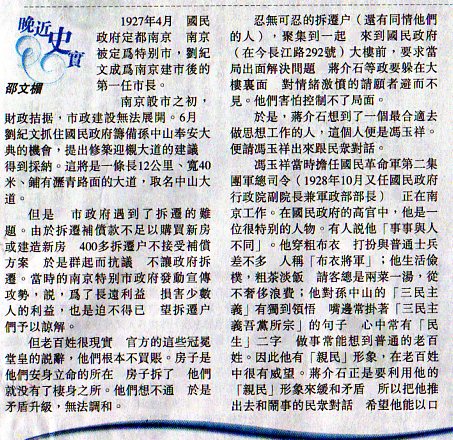 晚近史實
邵文櫊
1927年4月　國民
政府定都南京　南京
被定爲特别市，劉紀
文成爲南京建市後的
第一任市長。
南京設市之初，
財政拮据，市政建設無法展開。6月
劉紀文抓住國民政府籌備孫中山奉安大
典的機會，提出修築迎櫬大道的建議
得到採納。這將是一條長12公里、寬40
米、鋪有瀝青路面的大道，取名中山大
道。
但是　市政府遇到了拆遷的難
題。由於拆遷補償款不足以購買新房
或建造新房　400多拆遷户不接受補償
方案　於是群起而抗議　不讓政府拆
遷。當時的南京特别市政府發動宣傳
攻勢，説，爲了長遠利益　損害少數
人的利益，也是迫不得已　望拆遷户
們予以諒解。
但老百姓很現實　官方的這些冠冕
堂皇的説辭，他們根本不買賬。房子是
他們安身立命的所在　房子拆了　他們
就没有了棲身之所。他們想不通　於是
矛盾升級，無法調和。
忍無可忍的拆遷户（還有同情他們
的人），聚集到一起　來到國民政府
（在今長江路292號）大樓前，要求當
局出面解決問題　蔣介石等政要躲在大
樓裏面　對情緒激憤的請願者避而不
見。他們害怕控制不了局面。
於是，蔣介石想到了一個最合適去
做思想工作的人，這個人便是馮玉祥。
便請馮玉祥出來跟民衆對話。
馮玉祥當時擔任國民革命軍第二集
團軍總司令（1928年10月又任國民政府
行政院副院長兼軍政部部長）　正在南
京工作。在國民政府的高官中，他是一
位很特别的人物。有人説他「事事與人
不同」。他穿粗布衣　打扮與普通士兵
差不多　人稱「布衣將軍」；他生活儉
樸，粗茶淡飯　請客總是兩菜一湯，從
不奢侈浪費；他對孫中山的「三民主
義」有獨到領悟　嘴邊常掛著「三民主
義吾黨所宗」的句子　心中常有「民
生」二字　做事常能想到普通的老百
姓。因此他有「親民」形象，在老百姓
中很有威望。蔣介石正是要利用他的
「親民」形象來緩和矛盾　所以把他推
出去和鬧事的民衆對話　希望他能以口